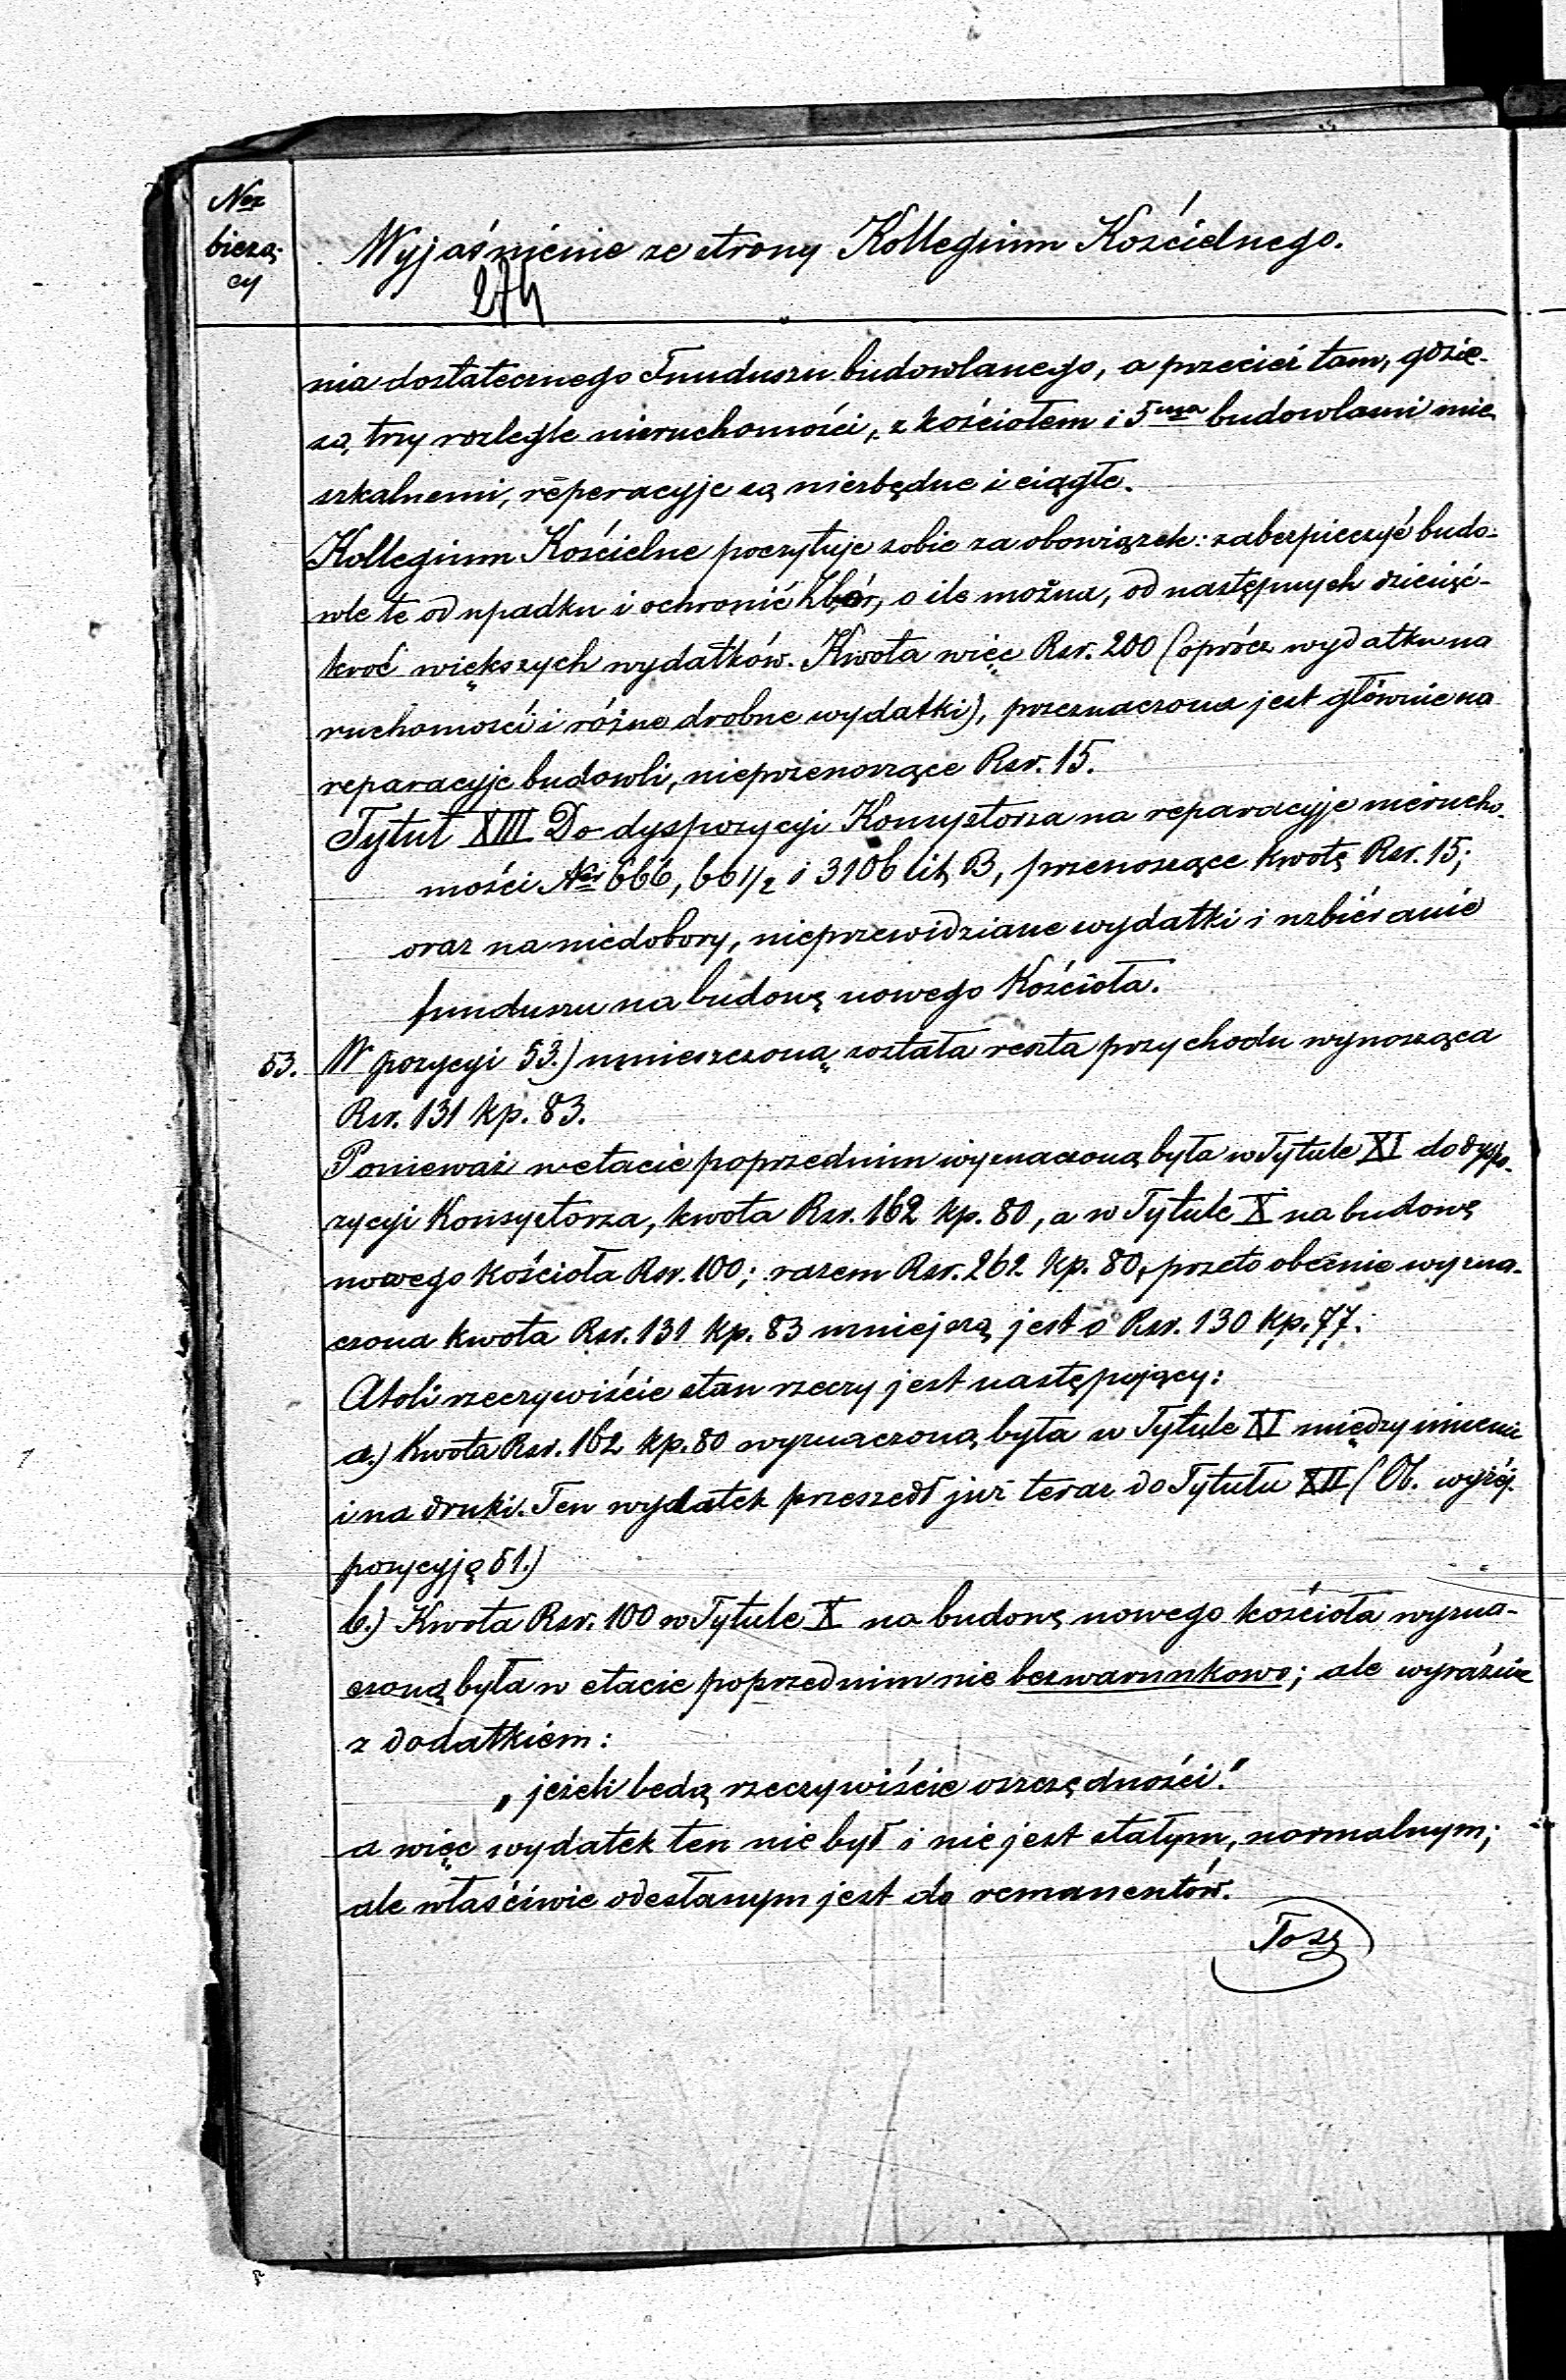 Nr
bieżą-
cy
Wyjaśnienie ze strony Kollegium Kościelnego.
274
nia dostatecznego Funduszu budowlanego, a przecież tam, gdzie
są, trzy rozległe nieruchomości, z kościołem i 5ma budowlami mie
szkalnemi, reperacyje są niezbędne i ciągłe.
Kollegium Kościelne poczytuje sobie za obowiązek: zabezpieczyć budo-
wle te od upadku i ochronić Zbór, o ile można, od następnych dziesięć-
kroć większych wydatków. Kwota więc Rsr. 200 (oprócz wydatku na
ruchomości i różne drobne wydatki), przeznaczona jest głównie na
reparacyje budowli, nieprzenoszące Rsr. 15.
Tytuł XIII Do dyspozycyi Konsystorza na reparacyje nierucho-
mości Nr 666, 66 1/2 i 3106 lit. B, przenoszące kwotę Rsr. 15;
oraz na niedobory, nieprzewidziane wydatki i uzbieranie
funduszu na budowę nowego Kościoła.
53. W pozycyi 53.) umieszczoną została reszta przychodu wynosząca
Rsr. 131 kp. 83.
Ponieważ w etacie poprzednim wyznaczoną była w Tytule XI do dyspo-
zycyi Konsystorza, kwota Rsr. 162 kp. 80, a w Tytule X na budowę
nowego kościoła Rsr. 100; razem Rsr. 262 kp. 80, przeto obecnie wyzna-
czona kwota Rsr. 131 kp. 83 mniejszą jest o Rsr. 130 kp. 77.
Atoli rzeczywiście stan rzeczy jest następujący:
a.) Kwota Rsr. 162 kp. 80 wyznaczoną była w Tytule XI między innemi
i na druki. Ten wydatek przeszedł już teraz do Tytułu XII (Ob. wyżéj
pozycyję 51.)
b.) Kwota Rsr. 100 w Tytule X na budowę nowego kościoła wyzna-
czoną była w etacie poprzednim nie bezwarunkowo; ale wyraźnie
z dodatkiem:
„jeżeli będą rzeczywiście oszczędności."
a więc wydatek ten nie był i nie jest stałym, normalnym;
ale właściwie odesłanym jest do remanentów.